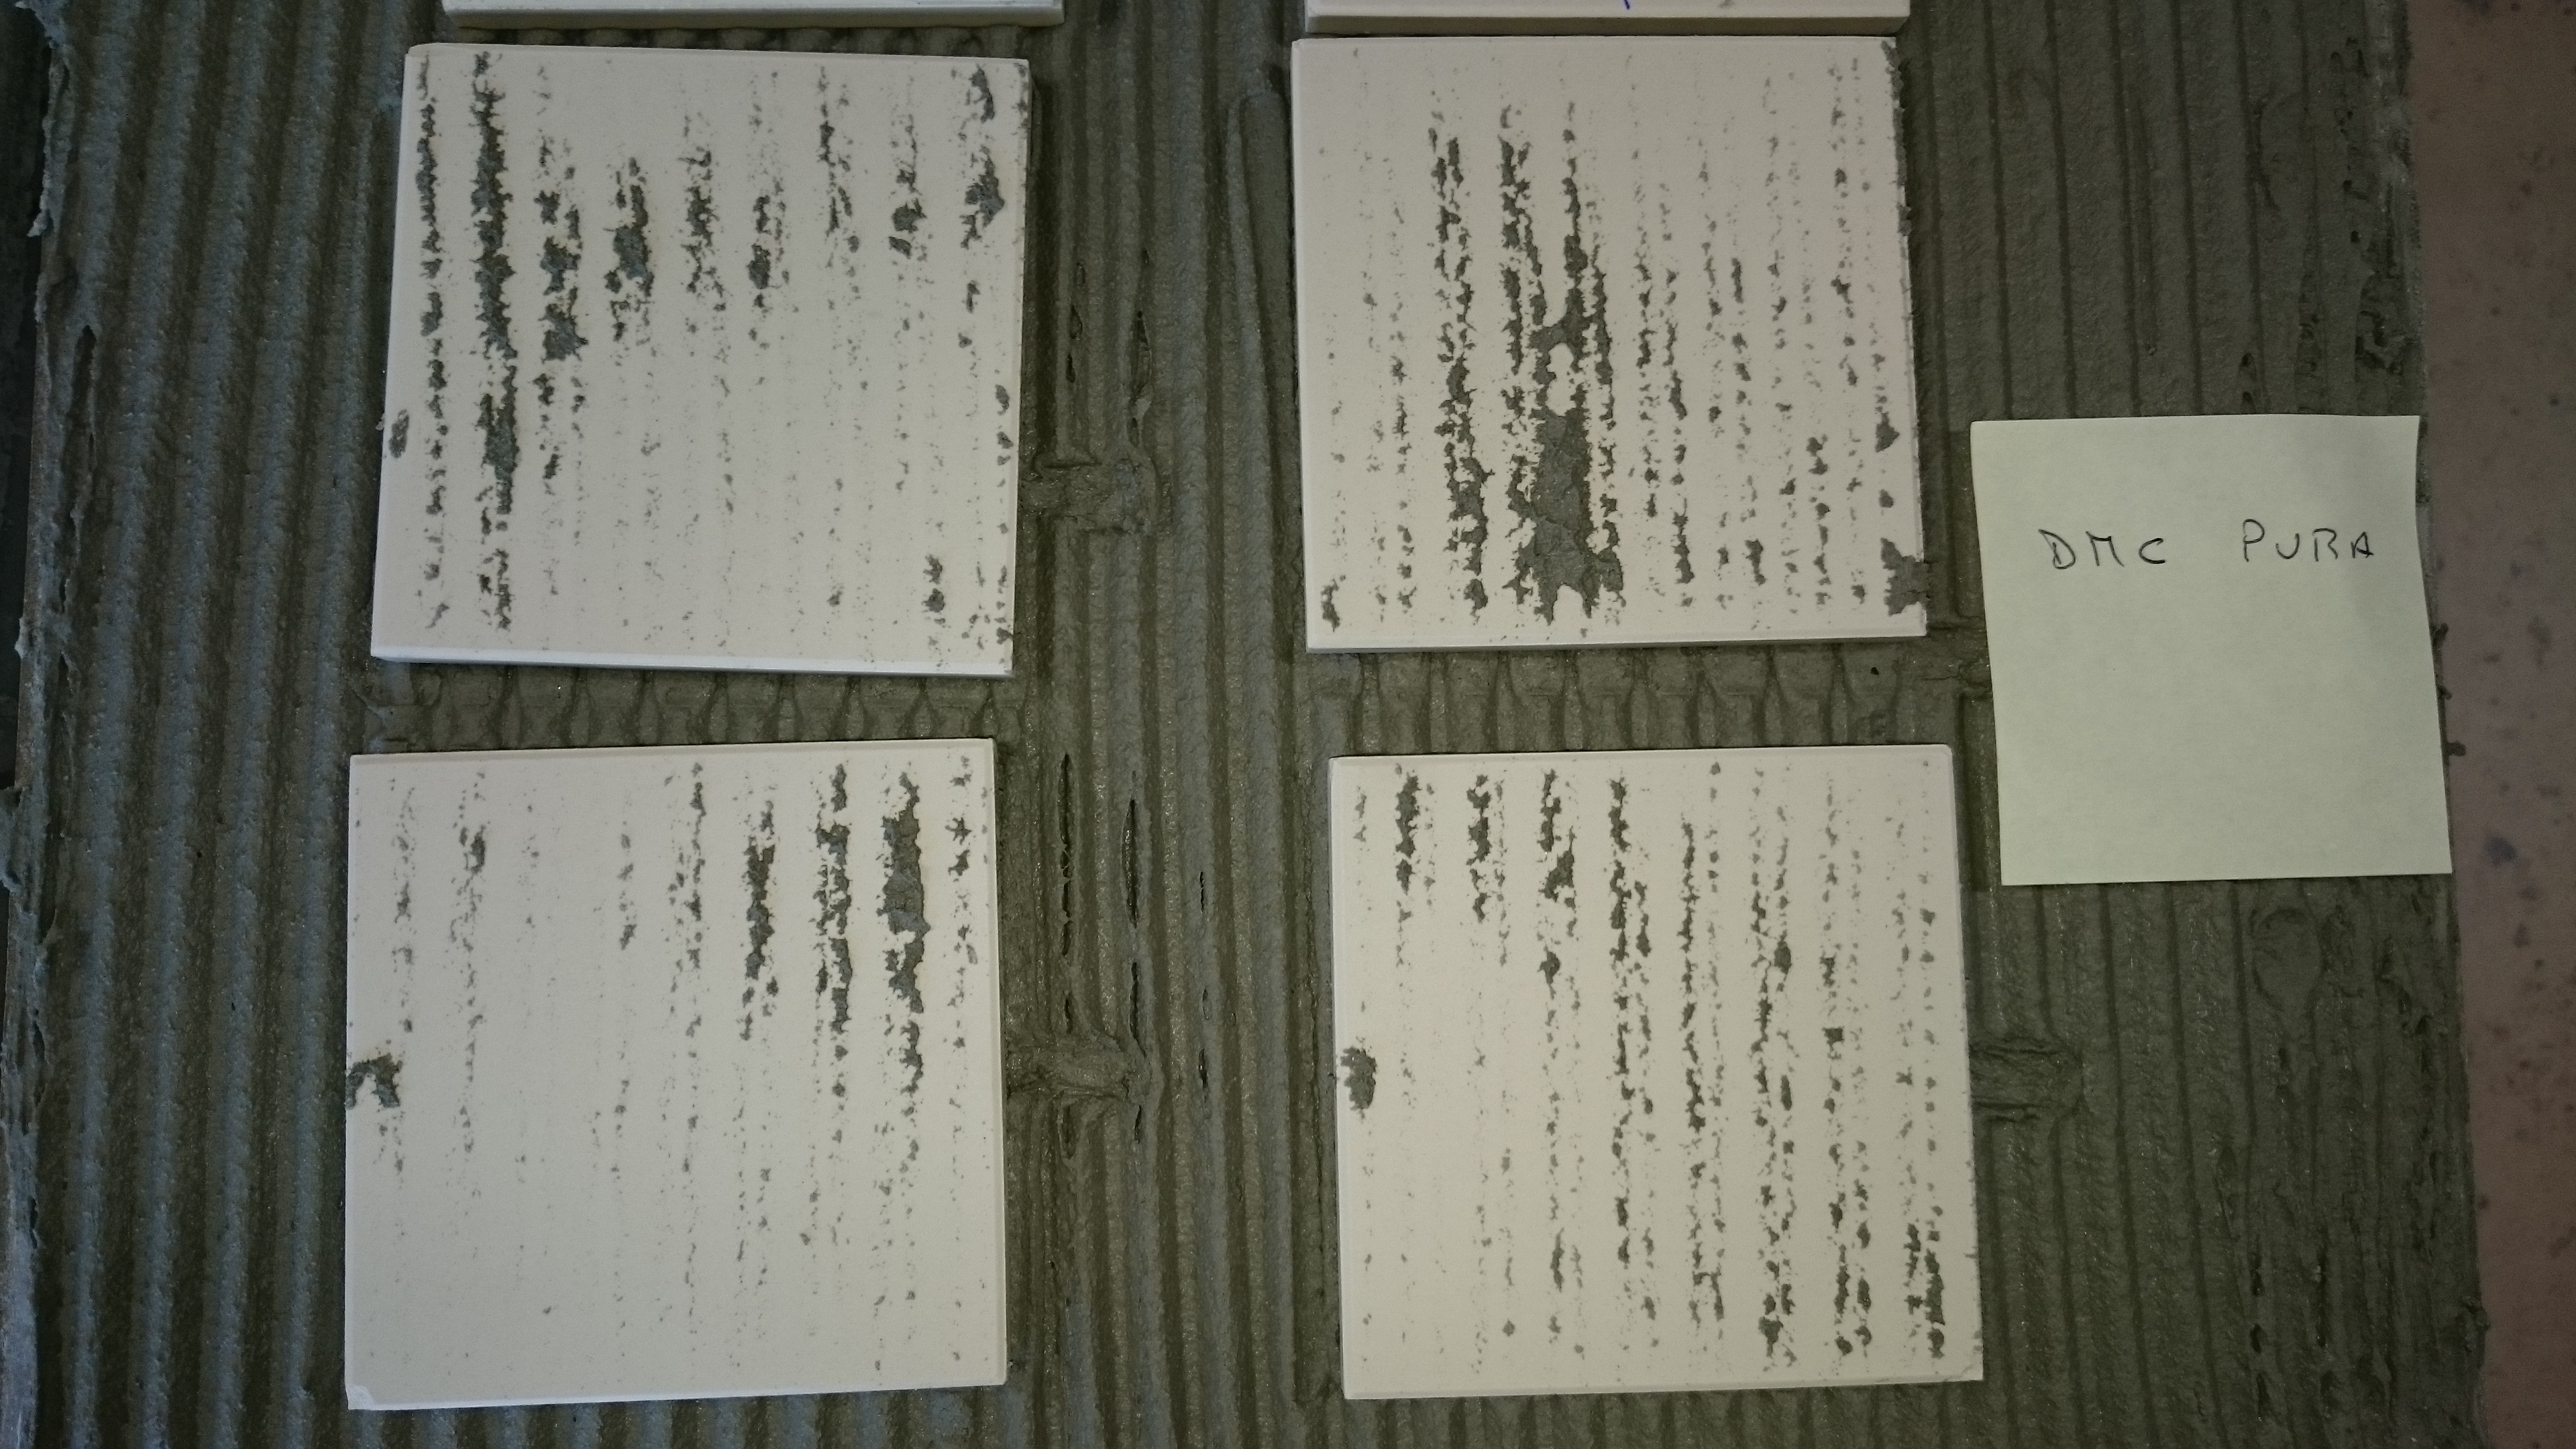 DMC PURA